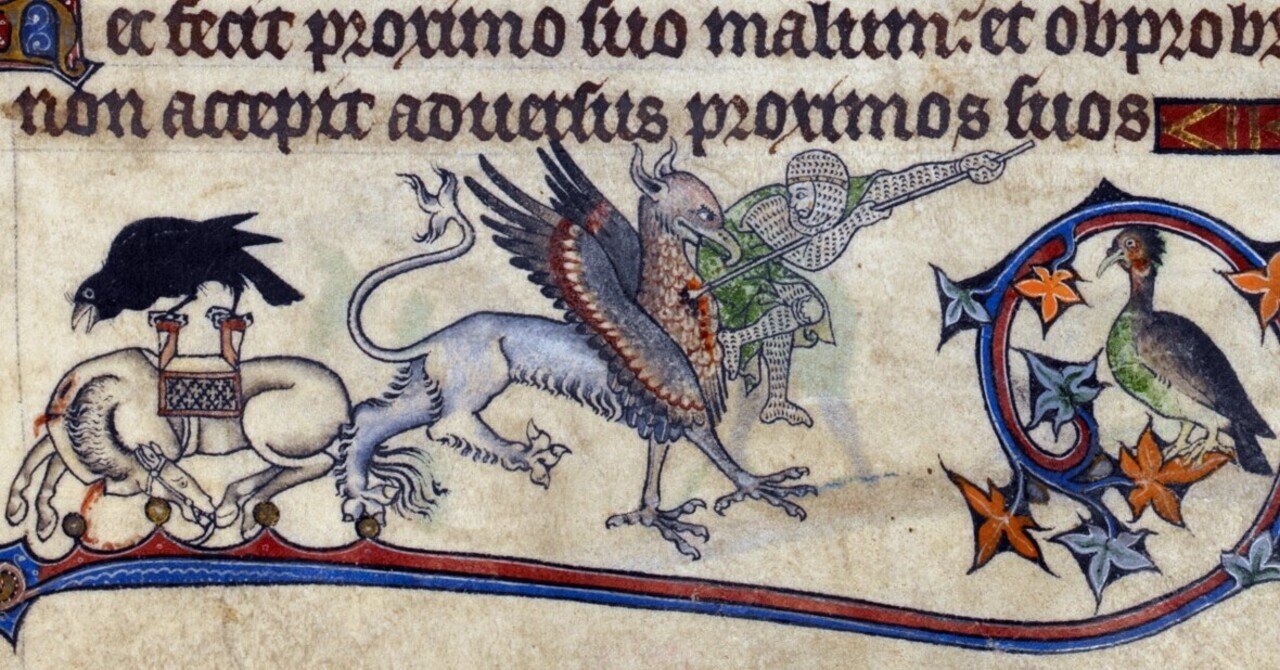 ec fecit proximo suo malum: et obprobr
non accepit adversus proximos suos